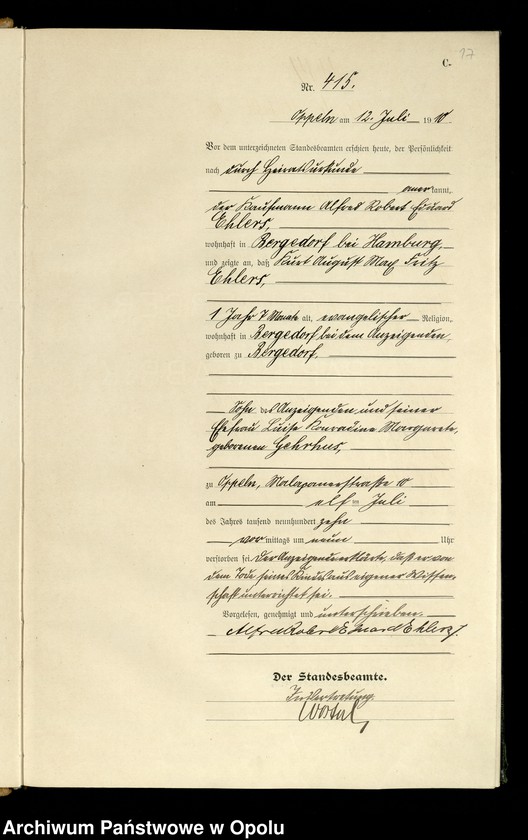 17
C.
Nr. 415.
Oppeln am 12. Juli 1910
Vor dem unterzeichneten Standesbeamten erschien heute, der Persönlichkeit
nach durch Heiratsurkunde
anerkannt,
der Kaufmann Alfred Robert Eduard
Ehlers,
wohnhaft in Bergedorf bei Hamburg,
und zeigte an, daß Kurt August Max Fritz
Ehlers,
1 Jahr 7 Monate alt, evangelischer Religion,
wohnhaft in Bergedorf bei dem Anzeigenden,
geboren zu Bergedorf,
Sohn des Anzeigenden und seiner
Ehefrau Luise Konradine Margarete,
geborenen Gehrhus,
zu Oppeln, Malapanerstraße 10
am elften Juli
des Jahres tausend neunhundert zehn
vormittags um neun Uhr
verstorben sei. Der Anzeigende erklärte, daß er von
dem Tode seines Kindes aus eigener Wissen-
schaft unterrichtet sei.
Vorgelesen, genehmigt und unterschrieben.
Alfred Robert Eduard Ehlers.
Der Standesbeamte.
In Vertretung
Archiwum Państwowe w Opolu